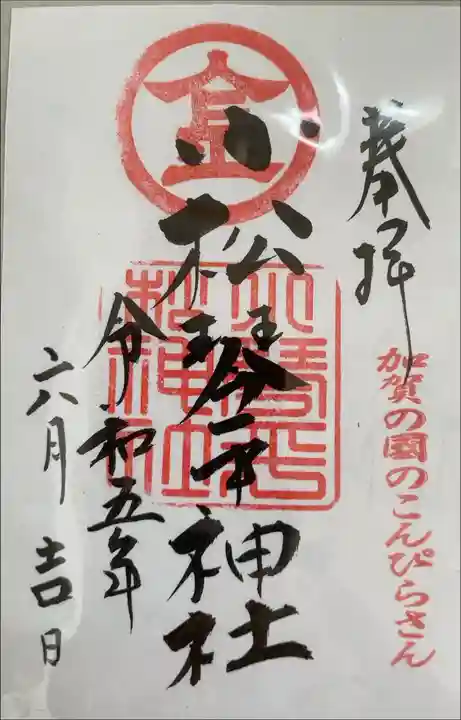 奉拝
加賀の國のこんぴらさん
金
小松琴平神社
令和五年
六月吉日